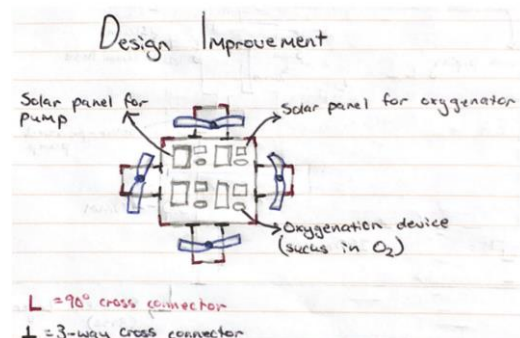 Design Improvement
Solar panel for pump
Solar panel for oxygenator
Oxygenation device
(sucks in O₂)
L = 90° cross connector
⊥ = 3-way cross connector